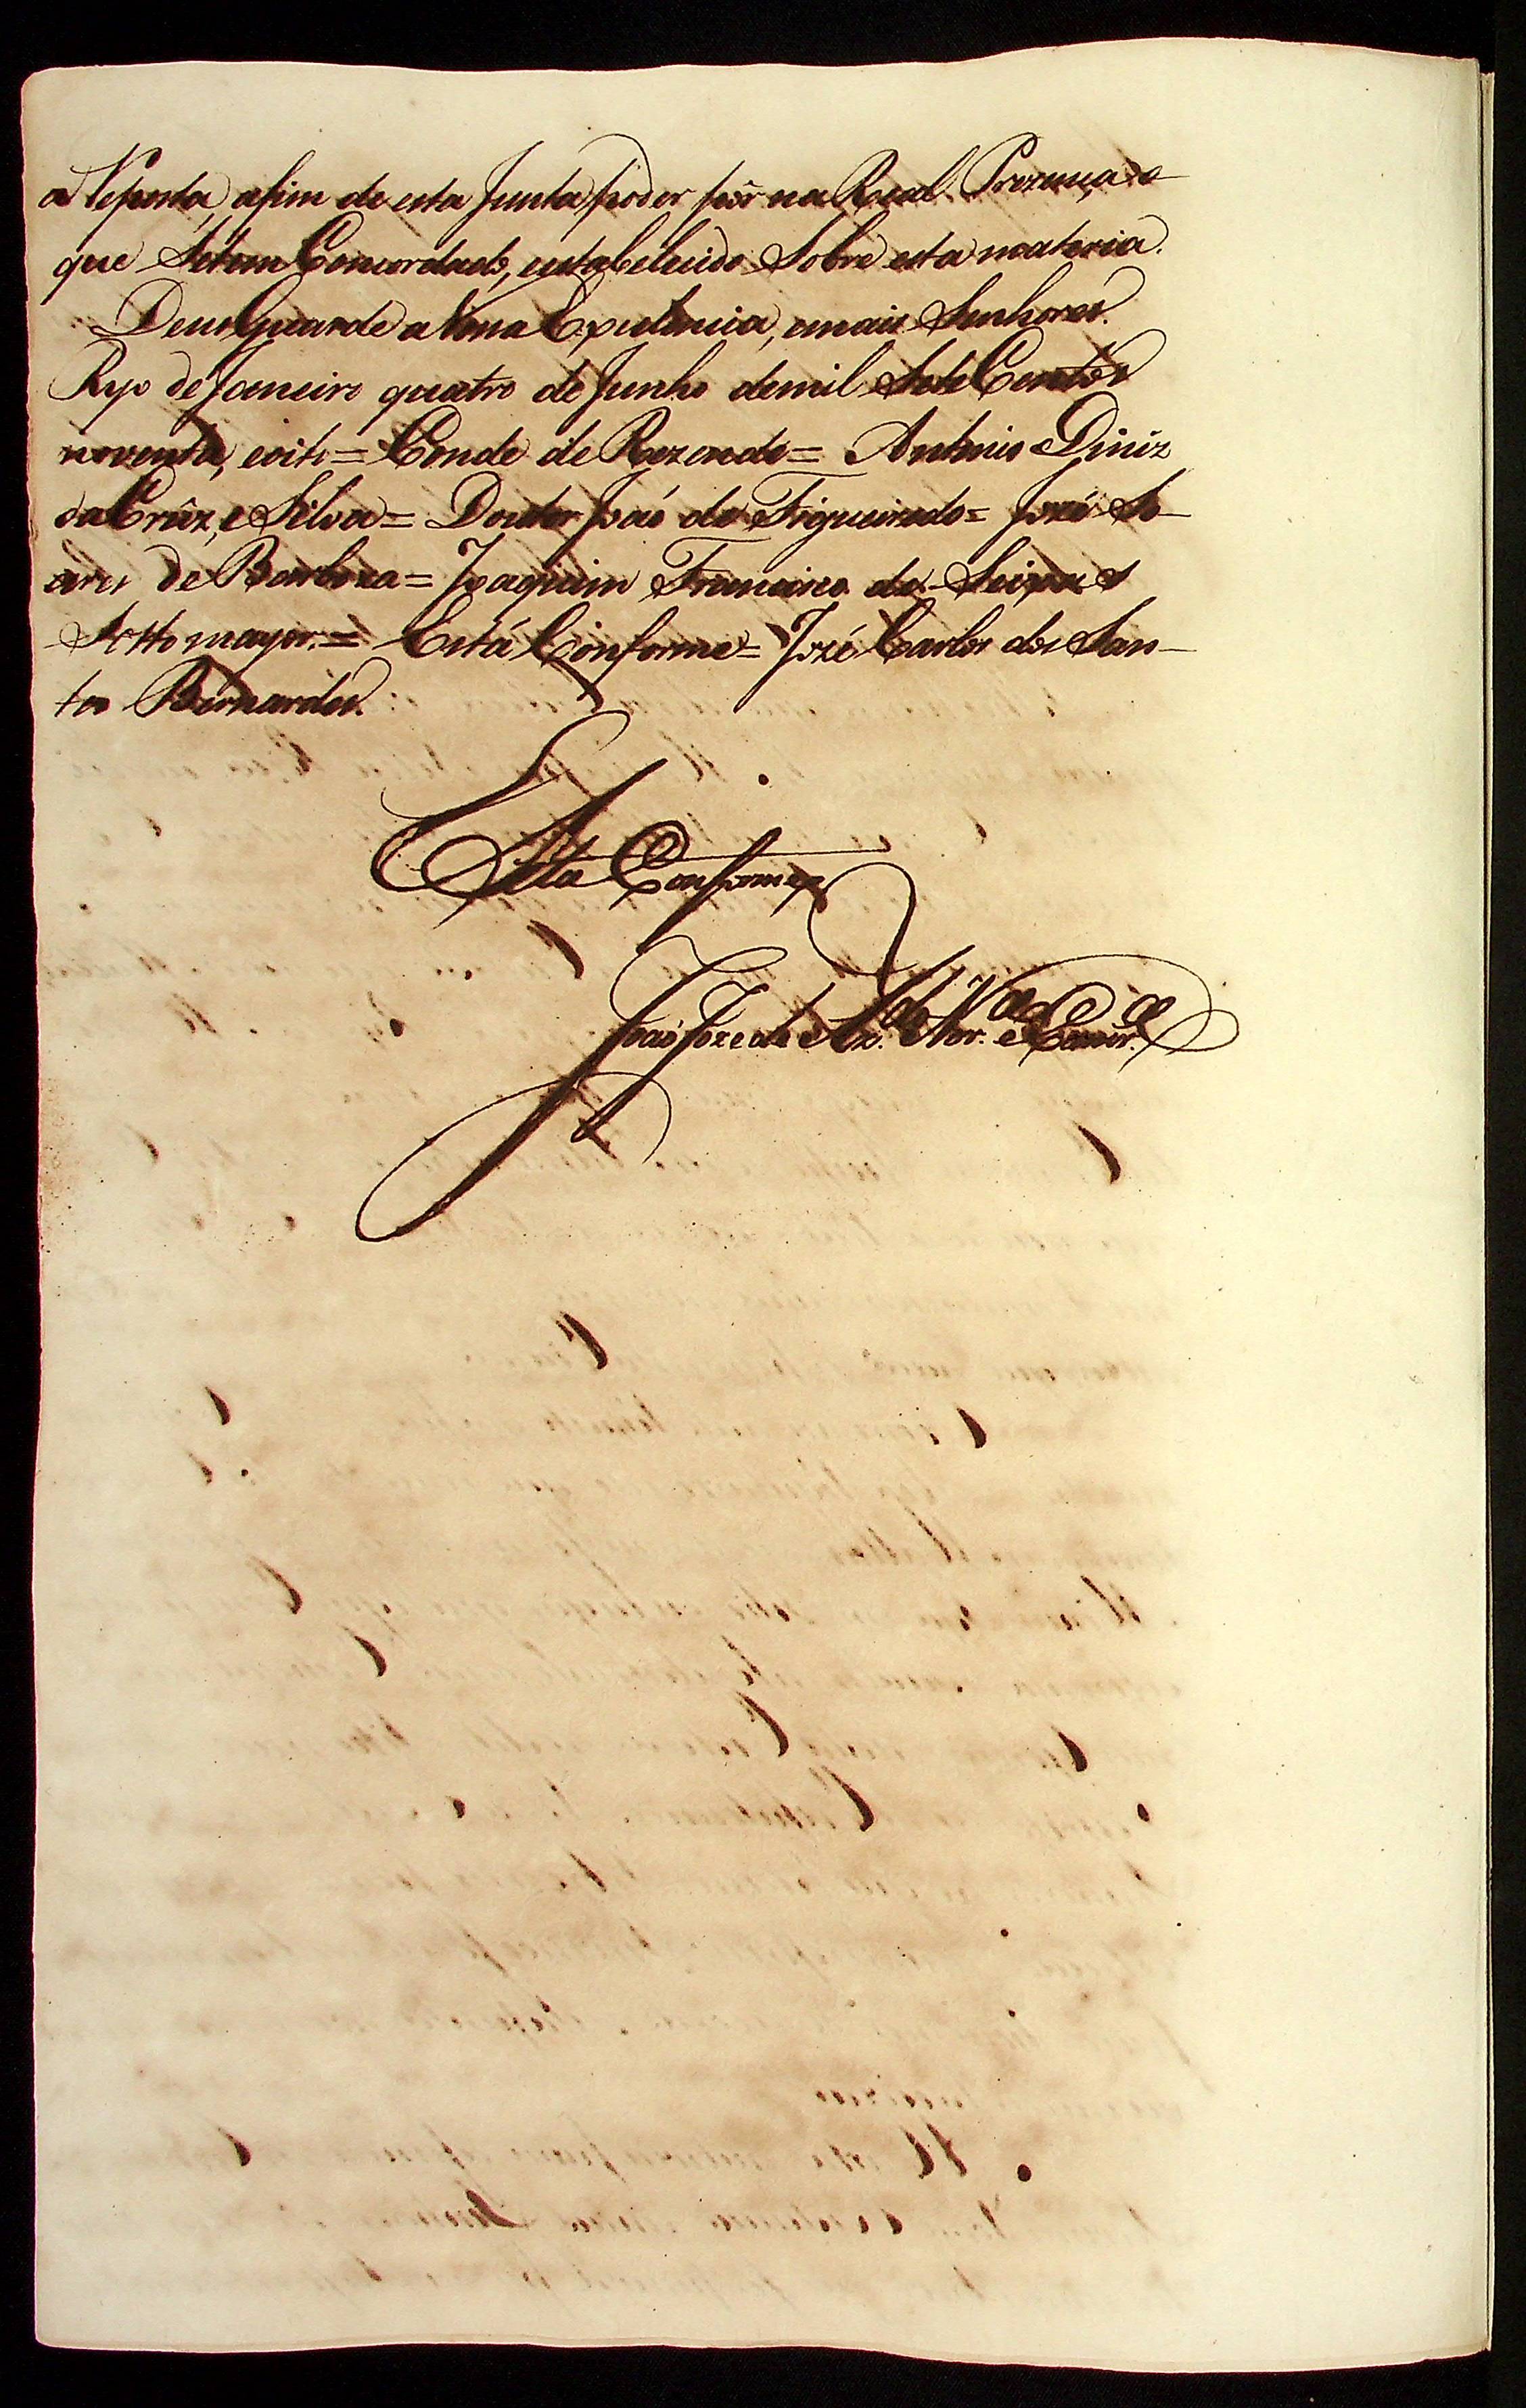 a reposta, afim de esta Junta poder pôr na Real Prezença o
que Setem Concordado, eestabelecido Sobre esta materia.
Deus Guarde a Vossa Excelencia, emais Senhores.
Ryo de Janeiro quatro de Junho demil Sete Centos
noventa, eoito = Conde de Rezende = Antonio Diniz
da Crûz, e Silva = Doutor Joaõ de Figueiredo = Jozé So-
ares de Barboza = Joaquim Francisco de Seixas
Sottomayor. = Está Conforme = Jozé Carlos dos San-
tos Bernardes.
Está Conforme
Joaõ Joze de